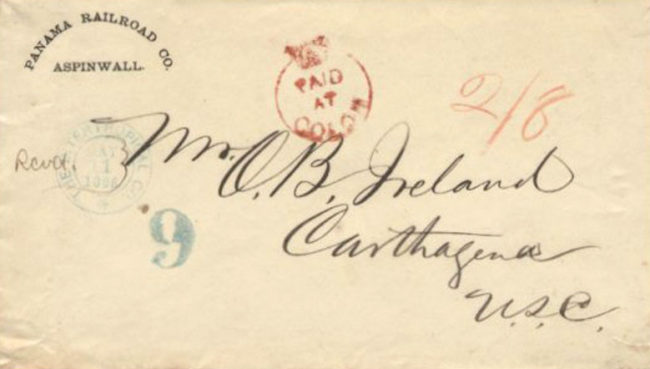 PANAMA RAILROAD CO.
ASPINWALL.
PAID
AT
COLON
2/8
Rcvd.
1
9
Mr. O. B. Ireland
Carthagena
U.S.C.